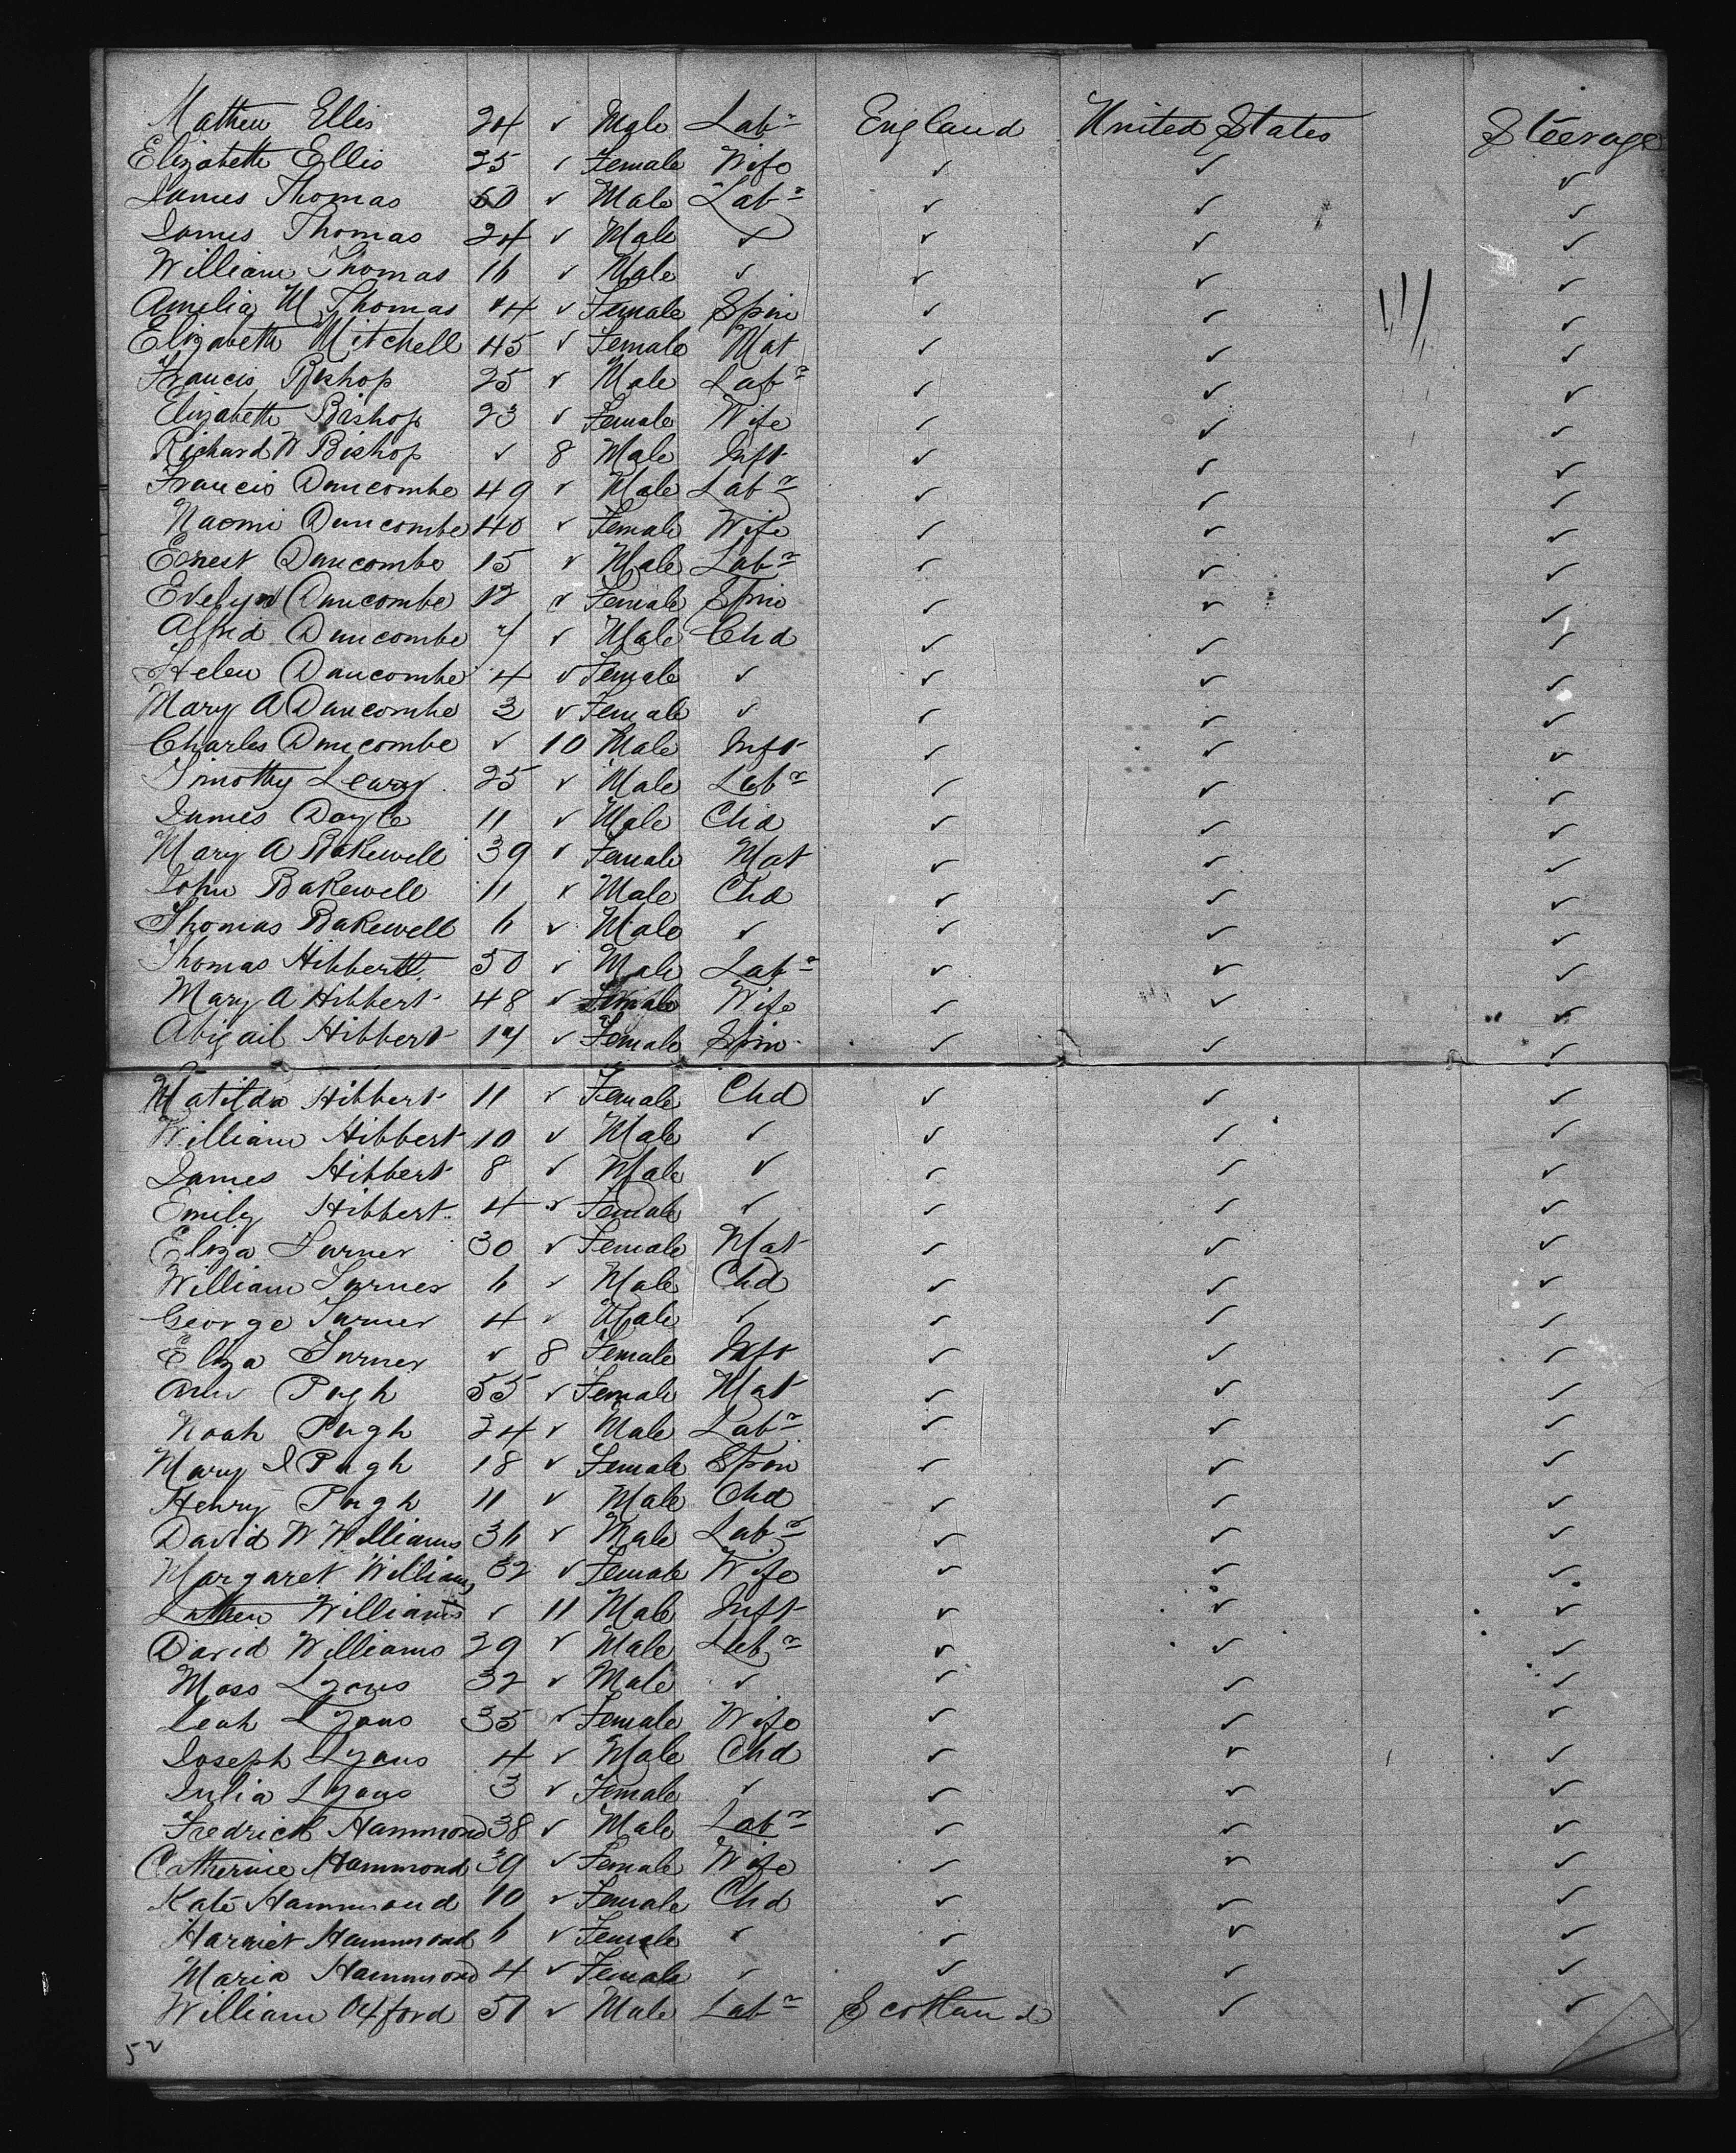 Mathew Ellis 24 ✓ Male Labr England United States Steerage
Elizabeth Ellis 25 ✓ Female Wife ✓ ✓ ✓
James Thomas 50 ✓ Male Labr ✓ ✓ ✓
James Thomas 24 ✓ Male ✓ ✓ ✓ ✓
William Thomas 16 ✓ Male ✓ ✓ ✓ ✓
Amelia M Thomas 44 ✓ Female Spin ✓ ✓ ✓
Elizabeth Mitchell 45 ✓ Female Mat ✓ ✓ ✓
Francis Bishop 25 ✓ Male Labr ✓ ✓ ✓
Elizabeth Bishop 23 ✓ Female Wife ✓ ✓ ✓
Richard W Bishop ✓ 8 Male Inft ✓ ✓ ✓
Francis Duncombe 49 ✓ Male Labr ✓ ✓ ✓
Naomi Duncombe 40 ✓ Female Wife ✓ ✓ ✓
Ernest Duncombe 15 ✓ Male Labr ✓ ✓ ✓
Evelyn Duncombe 12 ✓ Female Spin ✓ ✓ ✓
Alfred Duncombe 7 ✓ Male Chd ✓ ✓ ✓
Helen Duncombe 4 ✓ Female ✓ ✓ ✓ ✓
Mary A Duncombe 3 ✓ Female ✓ ✓ ✓ ✓
Charles Duncombe ✓ 10 Male Inft ✓ ✓ ✓
Timothy Leary 25 ✓ Male Labr ✓ ✓ ✓
James Doyle 11 ✓ Male Chd ✓ ✓ ✓
Mary A Bakewell 39 ✓ Female Mat ✓ ✓ ✓
John Bakewell 11 ✓ Male Chd ✓ ✓ ✓
Thomas Bakewell 6 ✓ Male ✓ ✓ ✓ ✓
Thomas Hibbert 50 ✓ Male Labr ✓ ✓ ✓
Mary A Hibbert 48 ✓ Female Wife ✓ ✓ ✓
Abigail Hibbert 17 ✓ Female Spin ✓ ✓ ✓
Matilda Hibbert 11 ✓ Female Chd ✓ ✓ ✓
William Hibbert 10 ✓ Male ✓ ✓ ✓ ✓
James Hibbert 8 ✓ Male ✓ ✓ ✓ ✓
Emily Hibbert 4 ✓ Female ✓ ✓ ✓ ✓
Eliza Turner 30 ✓ Female Mat ✓ ✓ ✓
William Turner 6 ✓ Male Chd ✓ ✓ ✓
George Turner 4 ✓ Male ✓ ✓ ✓ ✓
Eliza Turner ✓ 8 Female Inft ✓ ✓ ✓
Ann Pugh 55 ✓ Female Mat ✓ ✓ ✓
Noah Pugh 24 ✓ Male Labr ✓ ✓ ✓
Mary J Pugh 18 ✓ Female Spin ✓ ✓ ✓
Henry Pugh 11 ✓ Male Chd ✓ ✓ ✓
David W Williams 36 ✓ Male Labr ✓ ✓ ✓
Margaret Williams 32 ✓ Female Wife ✓ ✓ ✓
Williams ✓ 11 Male Inft ✓ ✓ ✓
David Williams 29 ✓ Male Labr ✓ ✓ ✓
Moss Lyons 32 ✓ Male ✓ ✓ ✓ ✓
Leah Lyons 35 ✓ Female Wife ✓ ✓ ✓
Joseph Lyons 4 ✓ Male Chd ✓ ✓ ✓
Julia Lyons 3 ✓ Female ✓ ✓ ✓ ✓
Fredrick Hammond 38 ✓ Male Labr ✓ ✓ ✓
Catherine Hammond 39 ✓ Female Wife ✓ ✓ ✓
Kate Hammond 10 ✓ Female Chd ✓ ✓ ✓
Harriet Hammond 6 ✓ Female ✓ ✓ ✓ ✓
Maria Hammond 4 ✓ Female ✓ ✓ ✓ ✓
William Oxford 51 ✓ Male Labr Scotland ✓ ✓
52